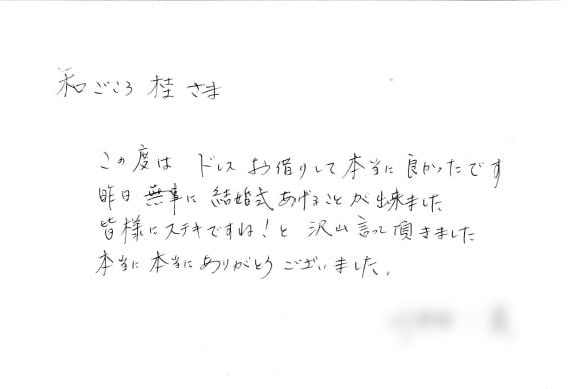 和ごころ 桂 さま
この度は ドレス お借りして本当に 良かったです
昨日 無事に 結婚式あげることが出来ました
皆様にステキですね!と 沢山言って頂きました
本当に本当にありがとうございました。